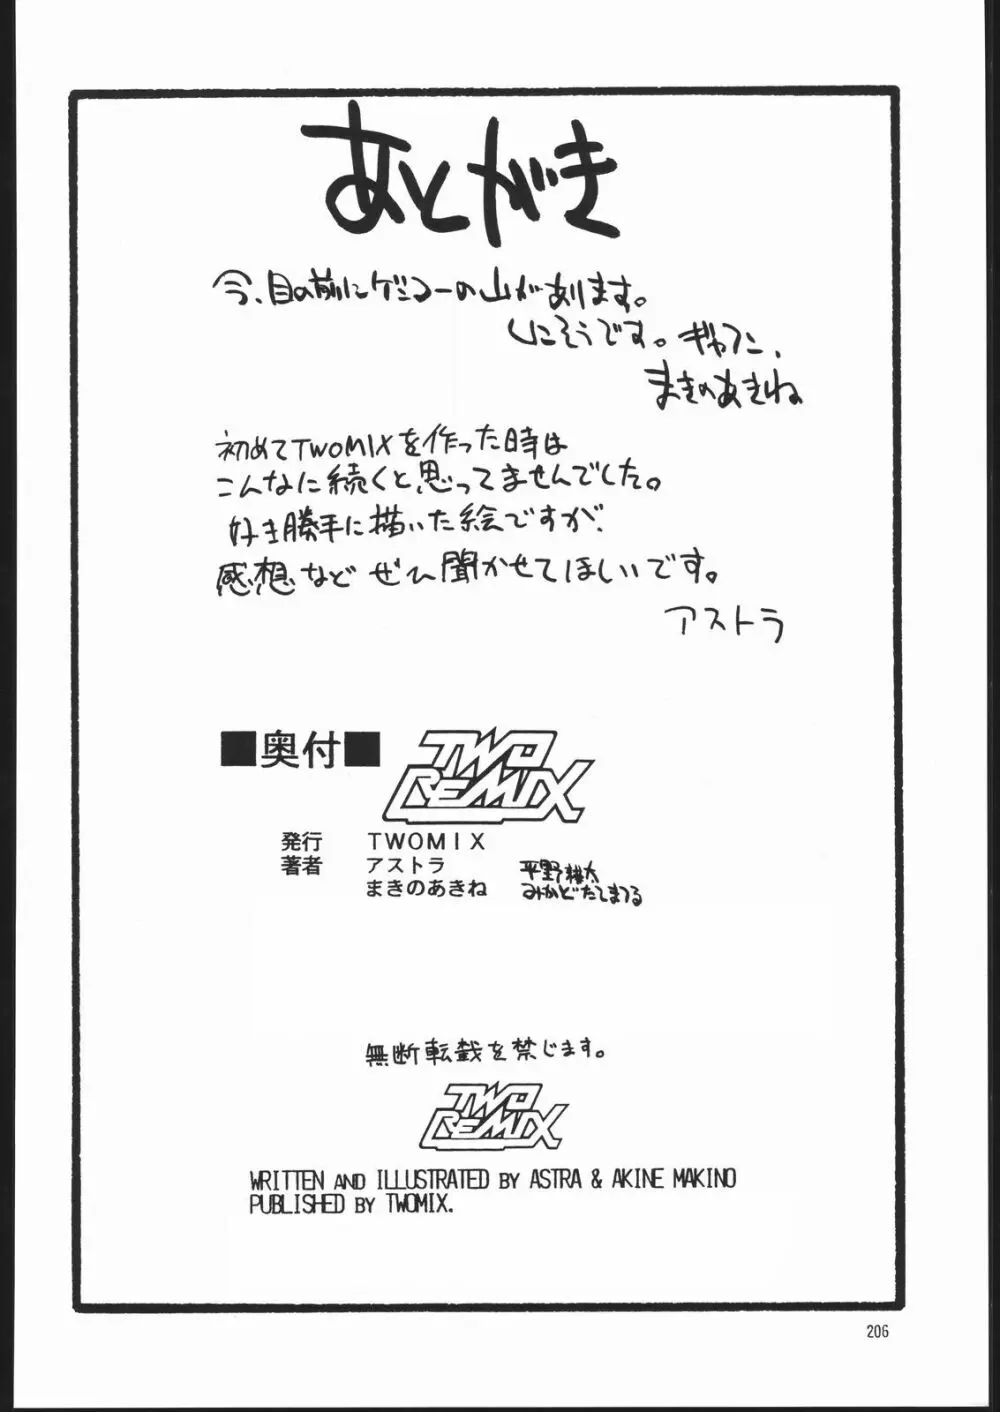 あとがき
今、目の前にケシゴーの山があります。
しにそうです。ぎゃふん、
まきのあきね
初めてTWOMIXを作った時は
こんなに続くと思ってませんでした。
好き勝手に描いた絵ですが、
感想など ぜひ聞かせてほしいです。
アストラ
■奥付■
TWO
REMIX
発行 TWOMIX
著者 アストラ 平野耕太
まきのあきね みかどたてまつる
無断転載を禁じます。
TWO
REMIX
WRITTEN AND ILLUSTRATED BY ASTRA & AKINE MAKINO
PUBLISHED BY TWOMIX.
206